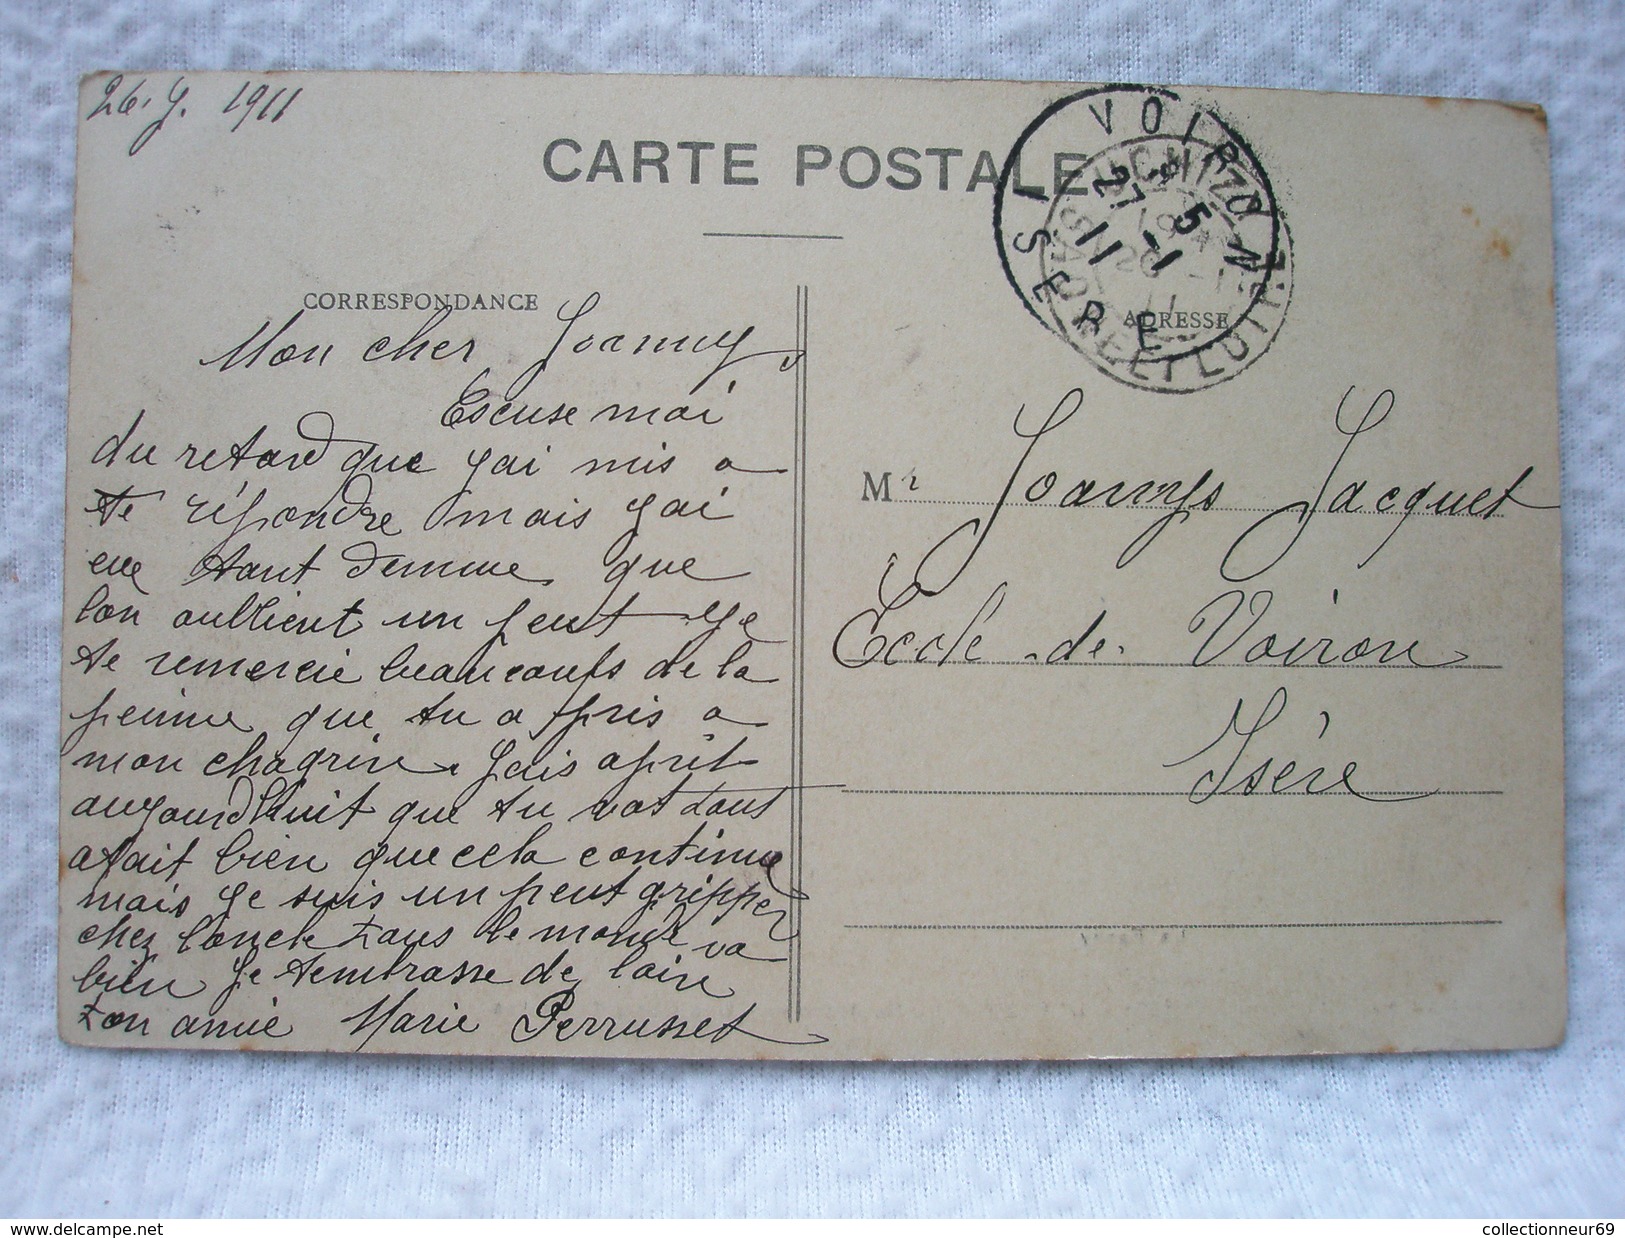 26. J. 1911
CARTE POSTALE
CORRESPONDANCE
ADRESSE
VOIRON
ISERE
27 - 1
11
Mon cher Joanny,
Escuse moi
du retard que jai mis a
te répondre mais jai
eue tant demme que
lon oublient un peut Je
te remercie beaucoups de la
peinne que tu a pris a
mon chagrin. Jais aprit
aujourdhuit que tu vot tout
afait bien que cela continue
mais je suis un peut gripper
chez loncle tous le monde va
bien Je tembrasse de loin
ton amie Marie Perrusset
Mr Joannys Jacquet
Ecole de Voiron
Isère
www.delcampe.net
collectionneur69